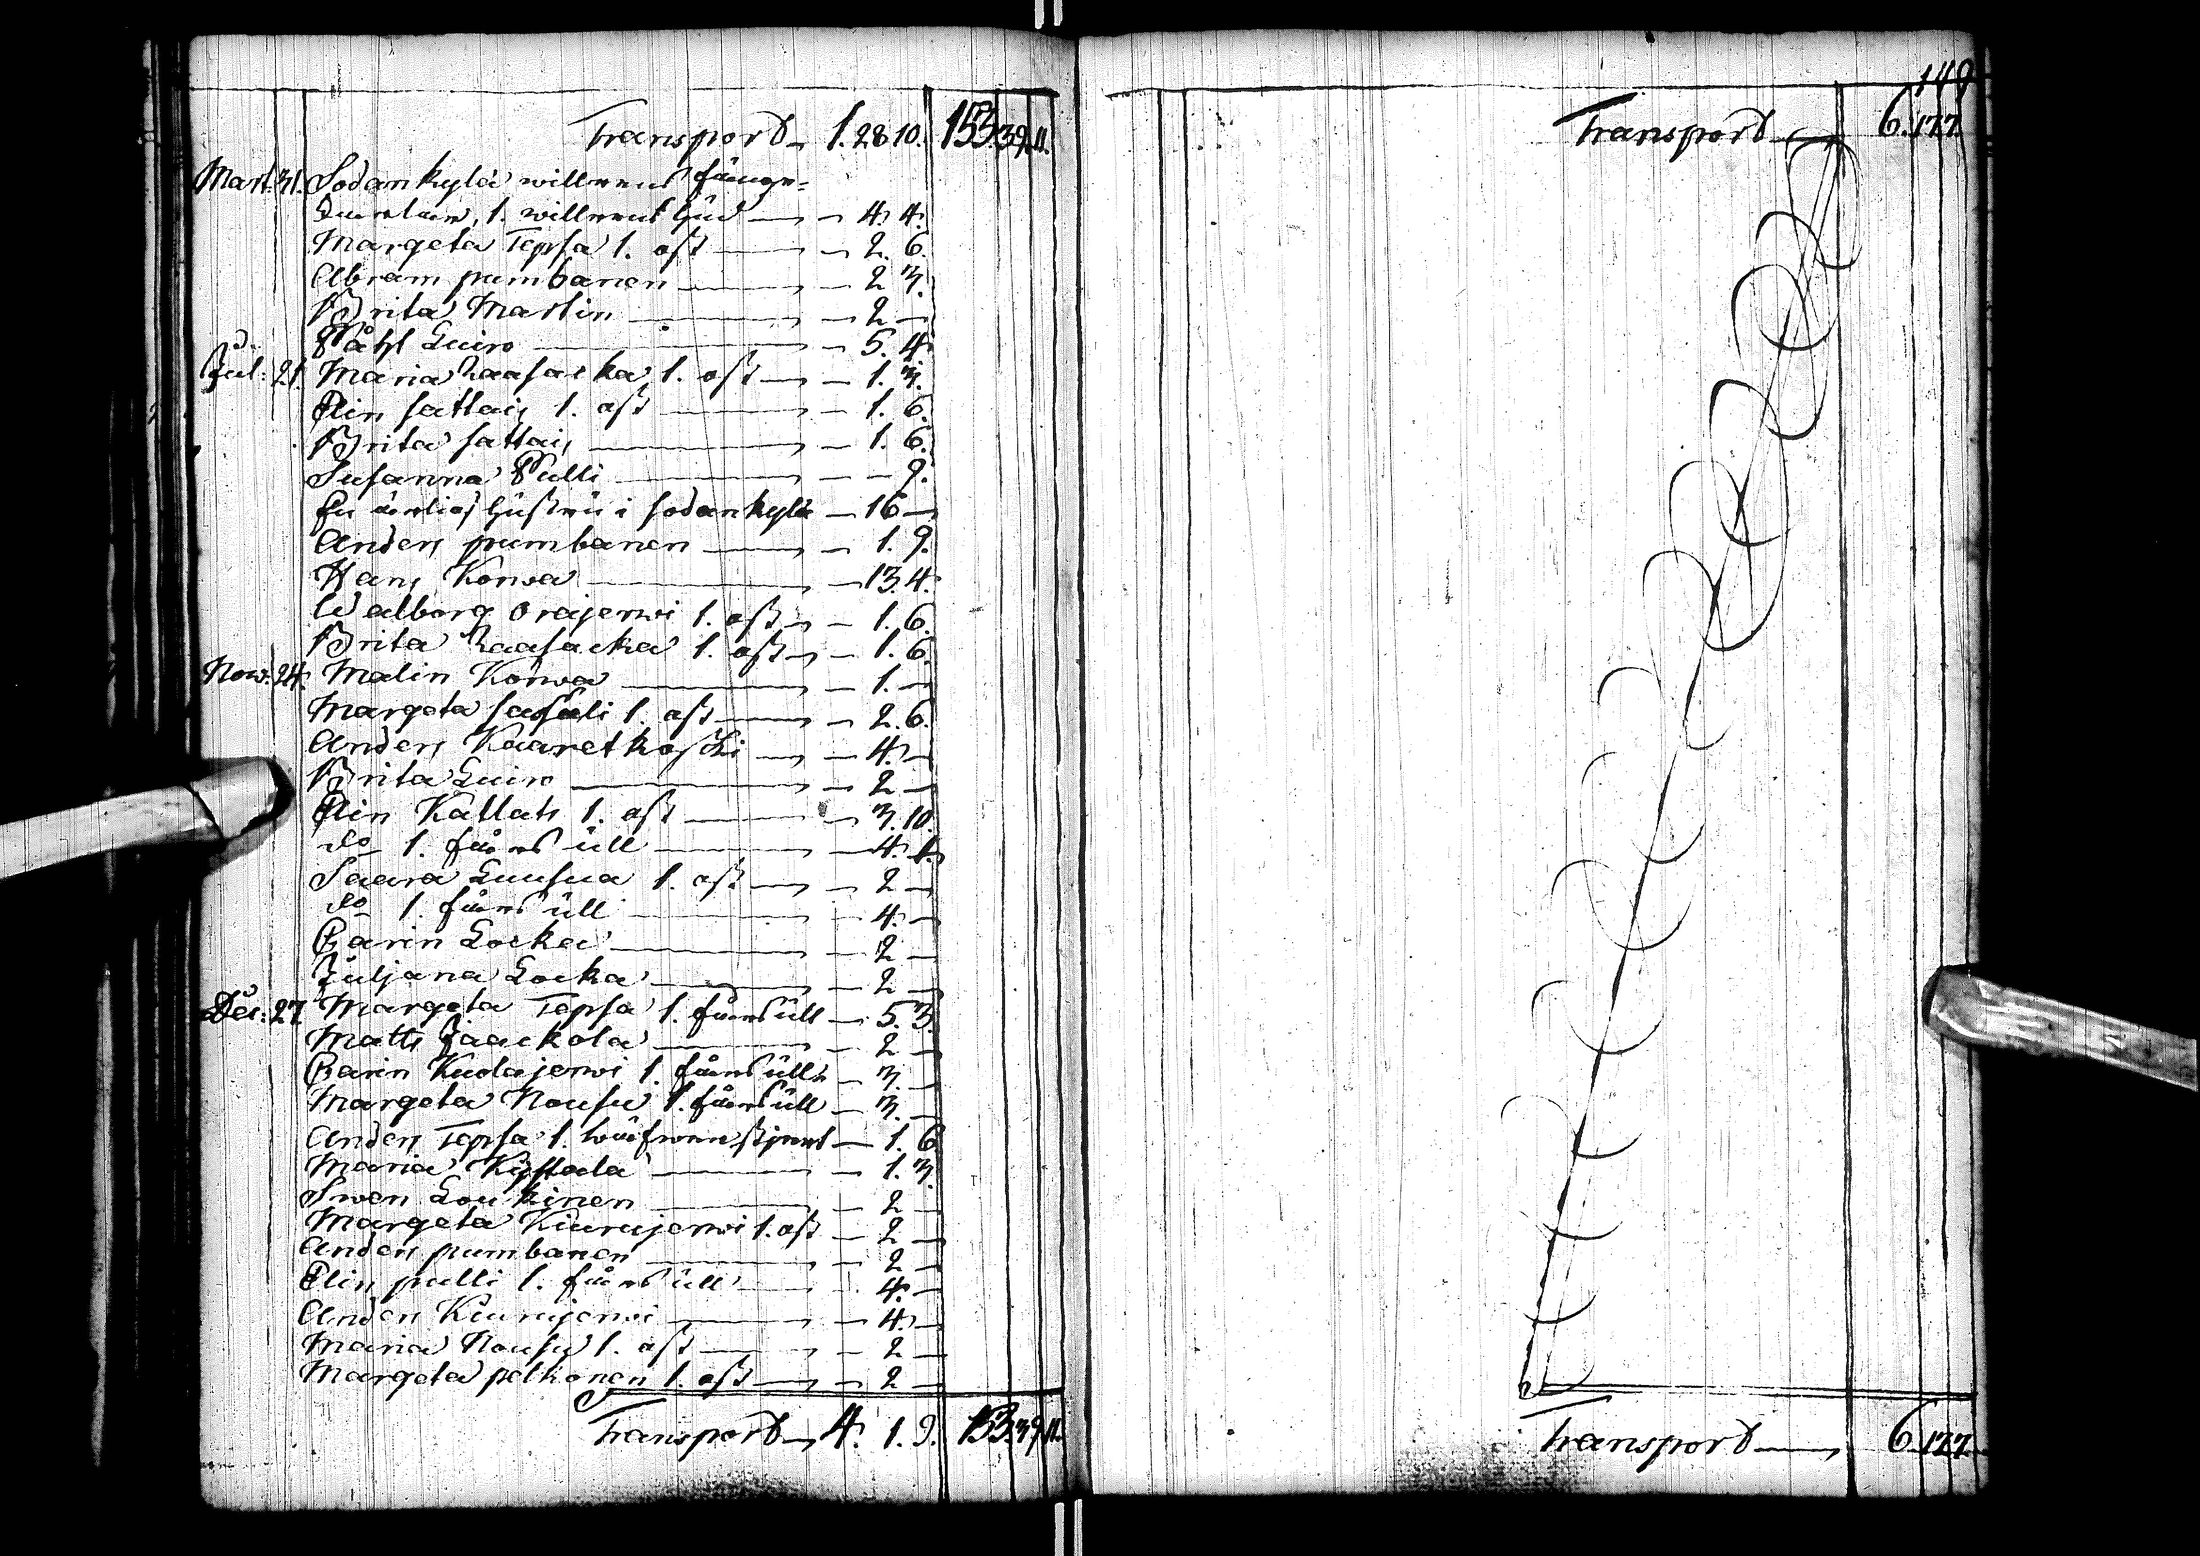 Transport 1. 28 10. 153. 39. 11.
Mart. 31. Sodankylä
1. 4. 4.
Margeta Tepsa 1. ost 2. 6.
Abram pumbanen 2 3.
Brita Martin 2
Påhl Luiro 5. 4.
Jul: 21. Maria Raasacka 1. ost 1. 3.
Elin sattais 1. ost 1. 6.
Brita sattais 1. 6.
Susanna Pulli 9.
i sodankylä 16
Anders pumbanen 1. 9.
Hans Korwa 13. 4.
Walborg Orajerwi 1. ost 1. 6.
Brita Raasacka 1. ost 1. 6.
Now: 24. Malin Korwa 1.
Margeta 1. ost 2. 6.
Anders Kaaretkoski 4.
Brita Luiro 2
Elin Kallats 1. ost 3. 10.
do 1. fårs üll 4. 1.
Saara Luusua 1. ost 2
do 1. fårs üll 4.
Carin Locka 2
Juljana Locka 2
Dec: 27. Margeta Tepsa 1. fårs üll 5. 3.
Matts Jaackola 2
Carin Kuolajerwi 1. fårs üll 3.
Margeta Nousu 1. fårs üll 3.
Anders Tepsa 1. 1. 6
Maria 1. 3.
Swen Loukinen 2
Margeta Kiurujerwi 1. ost 2
Anders pumbanen 2
Elin pulli 1. fårs üll 4.
Anders Kiurujerwi 4.
Maria Nousu 1. ost 2
Margeta pelkonen 1. ost 2
Transport 4. 1. 9. 153. 39. 11.
149
Transport 6. 17. 7.
Transport 6. 17. 7.